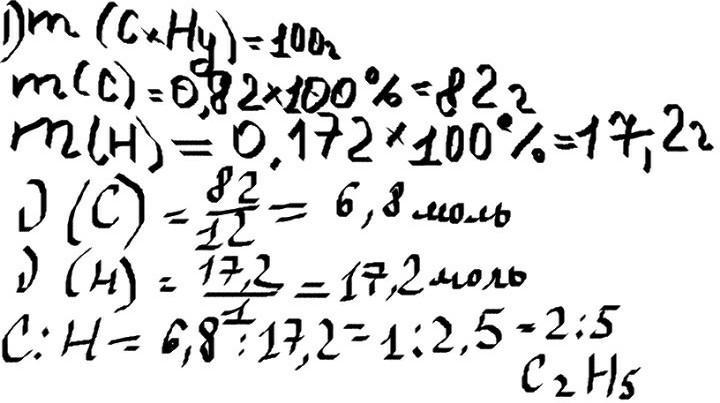 1) m (CxHy) = 100г
m(C) = 0,82×100% = 82г
m(H) = 0,172×100% = 17,2г
ν (C) = 82/12 = 6,8 моль
ν (H) = 17,2/1 = 17,2 моль
C:H = 6,8:17,2 = 1:2,5 = 2:5
C₂H₅